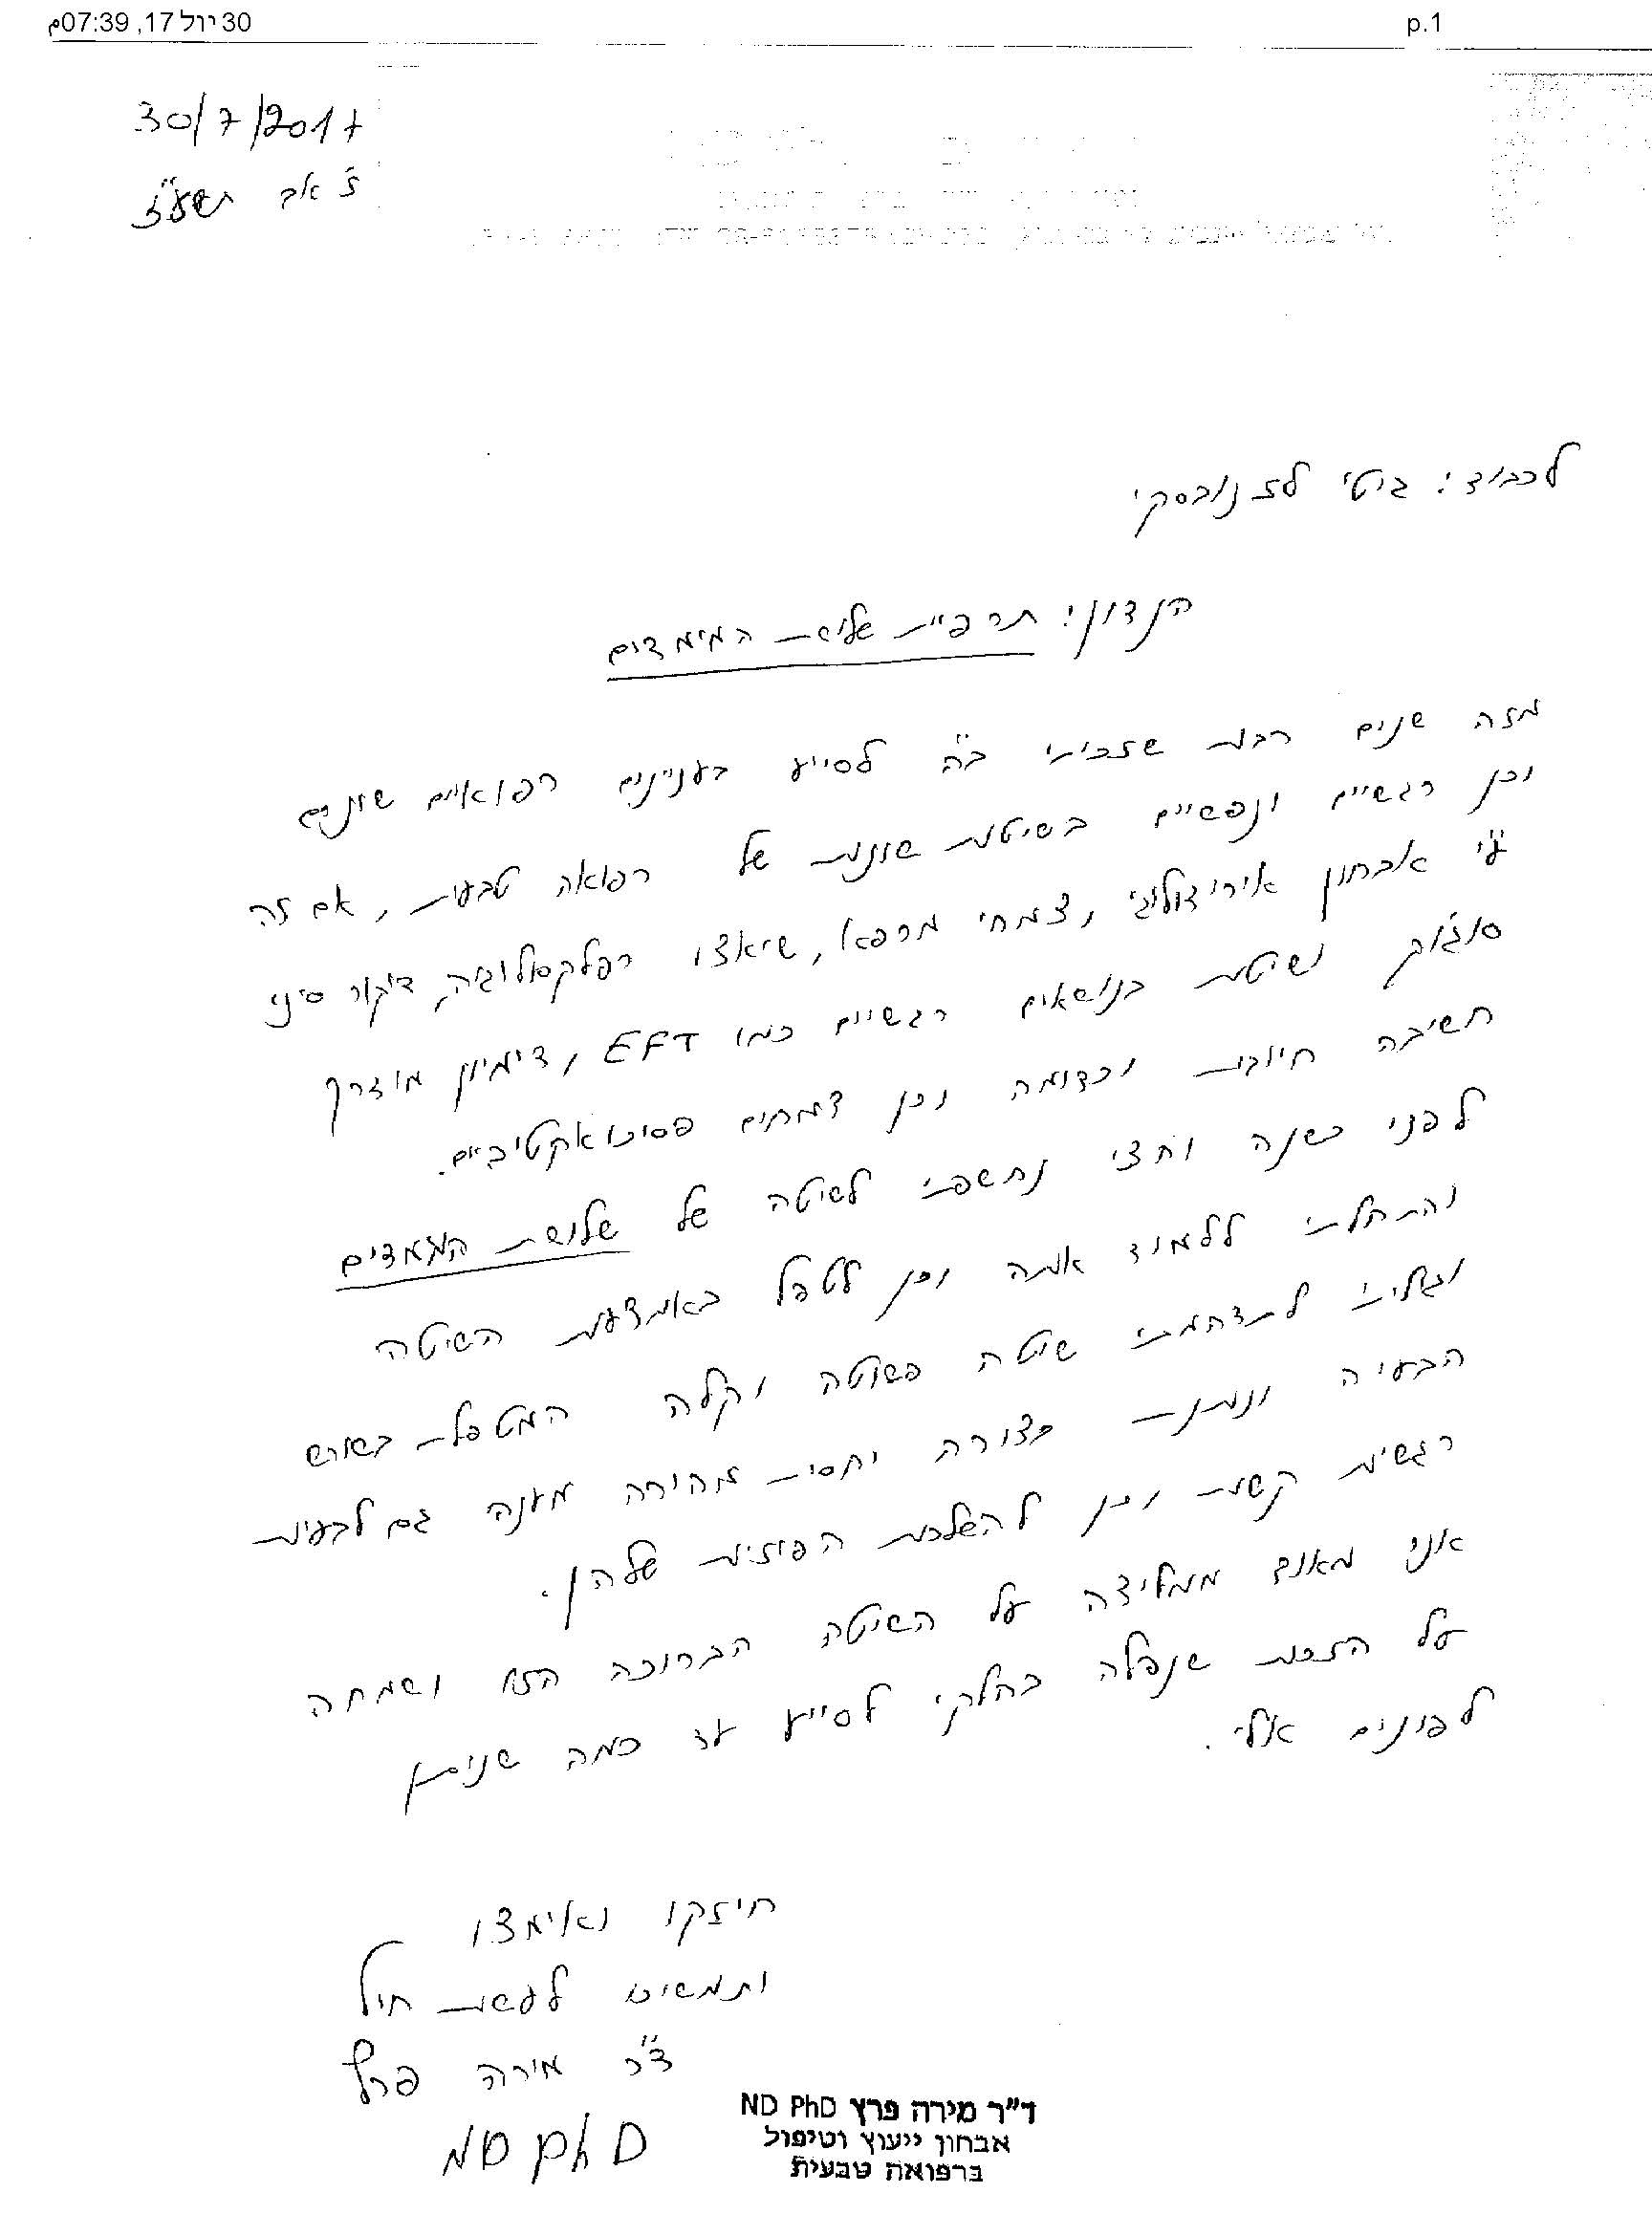 30 יול 17, 07:39מ p.1
30/7/2017
ז' אב תשע"ז
לכבוד: גיטי לזנובסקי
הנדון: תרפיית שלושת המימדים
מזה שנים רבות שזכיתי ב"ה לסייע בעניינים רפואיים שונים
וכן רגשיים ונפשיים בשיטות שונות של רפואה טבעית, אם זה
ע"י אבחון אירידולוגי, צמחי מרפא, שיאצו רפלקסולוגיה, דיקור סיני
סוג'וק ושיטות בנושאים רגשיים כמו EFT, דימיון מודרך
חשיבה חיובית וכדומה וכן צמחים פסיכואקטיביים.
לפני כשנה וחצי נחשפתי לשיטה של שלושת המימדים
והתחלתי ללמוד אותה וכן לטפל באמצעות השיטה
וגליתי לתדהמתי שיטה פשוטה וקלה המטפלת בשורש
הבעיה ונותנת בצורה יחסית מהירה מענה גם לבעיות
רגשיות קשות וכן להשלכות הפיזיות שלהן.
אני מאוד ממליצה על השיטה הברוכה הזו ושמחה
על הזכות שנפלה בחלקי לסייע עד כמה שניתן
לפונים אלי.
חיזקו ואימצו
ותמשיכו לעשות חיל
ד"ר מירה פרץ
ND PhD
ד"ר מירה פרץ ND PhD
אבחון ייעוץ וטיפול
ברפואה טבעית